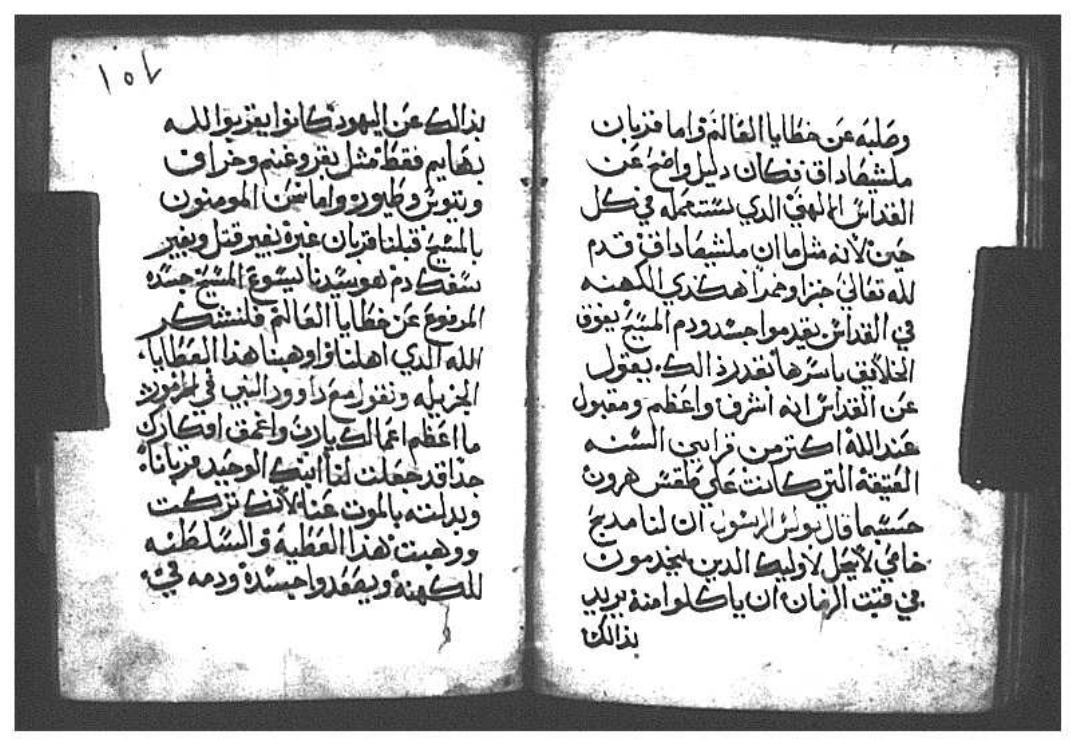 وصلبه عن خطايا العالم واما قربان
ملشيصاداق فكان دليل واضح عن
القداس الالهي الدي نستعمله في كل
حين لانه مثل ما ان ملشيصاداق قدم
لله تعالي خبزا وخمرا هكدي الكهنه
في القداس يقدموا جسد ودم المسيح يفوق
الخلايق باسرها بقدر ذالك يقول
عن القداس انه اشرف واعظم ومقبول
عند الله اكتر من قرابين السنه
العتيقة التي كانت علي طقس هرون
حسبما قال بولس الرسول ان لنا مدبح
خاص لا يحل لاوليك الدين يخدمون
في قبت الزمان ان ياكلوا منة يريد
بذالك
١٥٢
بذالك عن اليهود كانوا يقربوا لله
بهايم فقط مثل بقر وغنم وخراف
وتيوس وطيور واما نحن المومنون
بالمسيح قبلنا قربان غيره بغير قتل وبغير
سفك دم هو سيدنا يسوع المسيح جسده
المرفوع عن خطايا العالم فلنشكر
الله الدي اهلنا واوهبنا هذا العطايا
الجزيله ونقول مع داوود النبي في المزمور
ما اعظم اعمالك يارب واعمق افكارك
جدا قد جعلت لنا ابنك الوحيد قربانا
وبدلته بالموت عنا لانك تركت
ووهبت هذا العطية والسلطنه
للكهنة ويصعدوا جسدة ودمه في